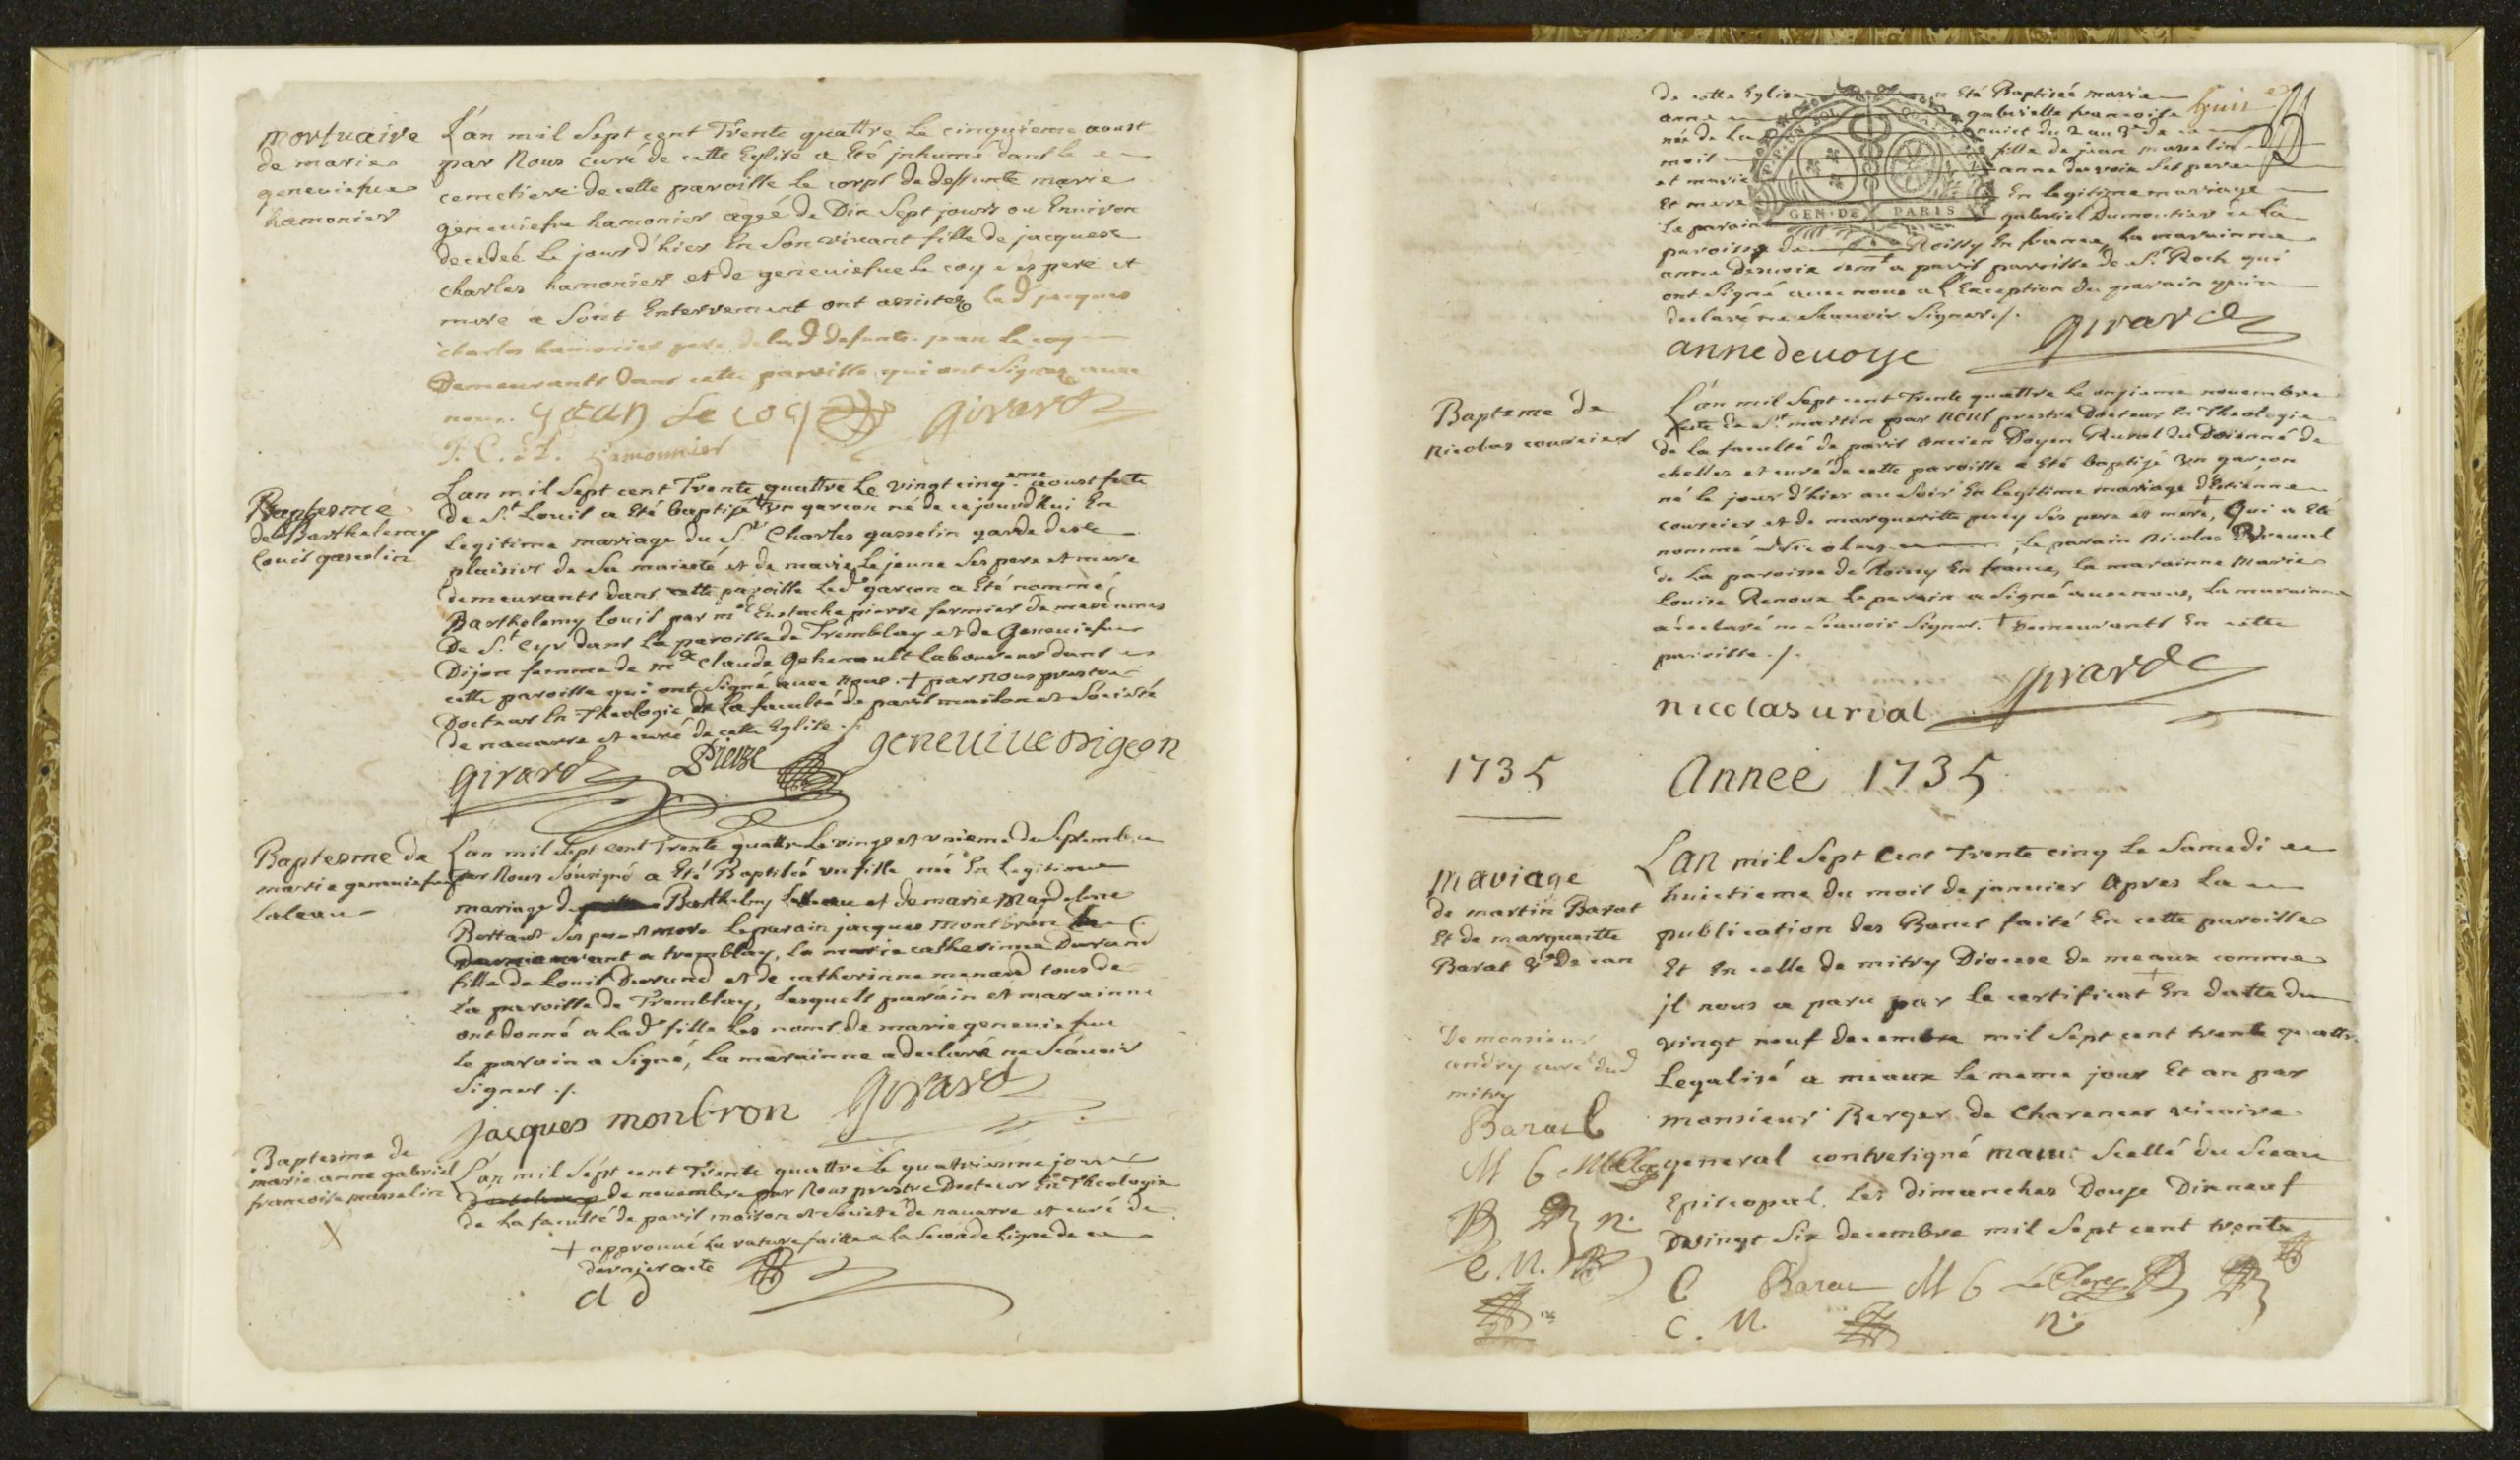 mortuaire
de marie
geneuiefue
hamonier
L'an mil Sept cent Trente quattre Le cinquieme aoust
par Nous curé de cette Eglise a Eté jnhumé dans le
cemetiere de cette paroisse Le corps de deffunte marie
geneuiefue hamonier aggé de Dix Sept jours ou Enuiron
decedeé Le jour d'hier En Son vivant fille de jacques
charles hamonier et de geneuiefue Le coq ses pere et
mere a Sont Enterrement ont assistez le d jacques
charles hamonier pere de lad defunte jean Le coq
Demeurants Dans cette paroisse qui ont Signez auec
nous. jean Le coq Girard
J. C. hamonnier
Baptesme
de Barthelemy
Louis gasselin
L'an mil Sept cent Trente quattre Le vingt cinq eme aoust feste
de St. Louis a Eté baptisé + un garcon né de ce jourd'hui En
Legitime mariage du Sr. Charles gasselin garde des
plaisirs de Sa maiesté et de marie Le jeune Ses pere et mere
demeurants dans cette paroisse Led garcon a Eté nommé
Barthelemy Louis par mr Eustache pierre fermier de mesdames
De St. Cyr dans La paroisse de Tremblay et de Geneuiefue
Dijon femme de mre claude Gehenault Laboureur dans
cette paroisse qui ont Signé auec nous. + par nous prestre
Docteur En Theologie de La faculté de paris maison et Société
de nauarre et curé de cette Eglise ./.
Girard Pierre geneuiue digeon
Baptesme de
marie geneuiefue
Laleau
L'an mil Sept cent Trente quattre Le vingt et vnieme de Septembre
par Nous Sousigné a Eté Baptisée vn fille née En Legitime
mariage de Barthelmy Laleau et de marie Magdelene
Bertaut Ses pere et mere Le parain jacques montbron
demeurant a tremblay, La marie catherinne Durand
fille de Louis Durand et de catherinne menard tous de
La paroisse de Tremblay, Lesquels parain et marainne
ont donné a Lad fille Les noms de marie geneuiefue
Le parain a Signé, La marainne a declaré ne Scauoir
Signer ./.
jacques montron Girard
Baptesme de
marie anne gabriel
francoise masselin
X
L'an mil Sept cent Trente quattre Le quatrieme jour
de nouembre par Nous prestre Docteur En Theologie
de La faculté de paris maison et Societé de nauarre et curé de
+ approuué La rature faitte a La Seconde Ligne de ce
dernier acte
d d
de cette Eglise a Eté Baptisée marie
anne gabrielle francoise
née de La nuict du 2 au 3e de ce
mois fille de jean masselin
et marie anne deuoix Ses pere
Et mere En Legitime mariage
Le parain gabriel Dumontier de La
paroisse de Roissy En france, La marainne
anne Deuoix a paris paroisse de St Roch qui
ont Signé auec nous a L'Exception du parain qui a
declaré ne Scauoir Signer ./.
huit
GEN. DE PARIS
anne deuoye Girard
Bapteme de
Nicolas courcier
L'an mil Sept cent Trente quattre Le onzieme nouembre
feste de St. martin par Nous prestre Docteur En Theologie
de La faculté de paris ancien Doyen Rural du Doienné de
chelles et curé de cette paroisse a Eté baptizé un garcon
né le jour d'hier au Soir En Legitime mariage d'Etienne
courcier et de margueritte Ses pere et mere, + Qui a Eté
nommé Nicolas , Le parain Nicolas
de La paroisse de Roissy En france, La marainne Marie
Louise Renoux Le parain a Signé auec nous, La marainne
a declaré ne Scauoir Signer. + Demeurants En cette
paroisse ./.
nicolas urial Girard
1735
Anneé 1735
Mariage
de martin Barat
Et de marguerite
Barat
L'AN mil Sept cent Trente cinq Le Samedi
huictieme du mois de januier Apres La
publication des Bancs faité En cette paroisse
Et En celle de mitry Diocese de meaux comme
jl nous a paru par Le certificat + En datte du
vingt neuf decembre mil Sept cent trente quattre
Legalisé a meaux le meme jour Et an par
monsieur Berger de Charancer vicaire
general contresigné Scellé du Sceau
Episcopal. Les dimanches Douze Dixneuf
vingt Six decembre mil Sept cent trente
De monsieur
andry curé dud
mitry
Barat
M G
n.
C. N.
C Barat M G Le Clerc
C. N. n.